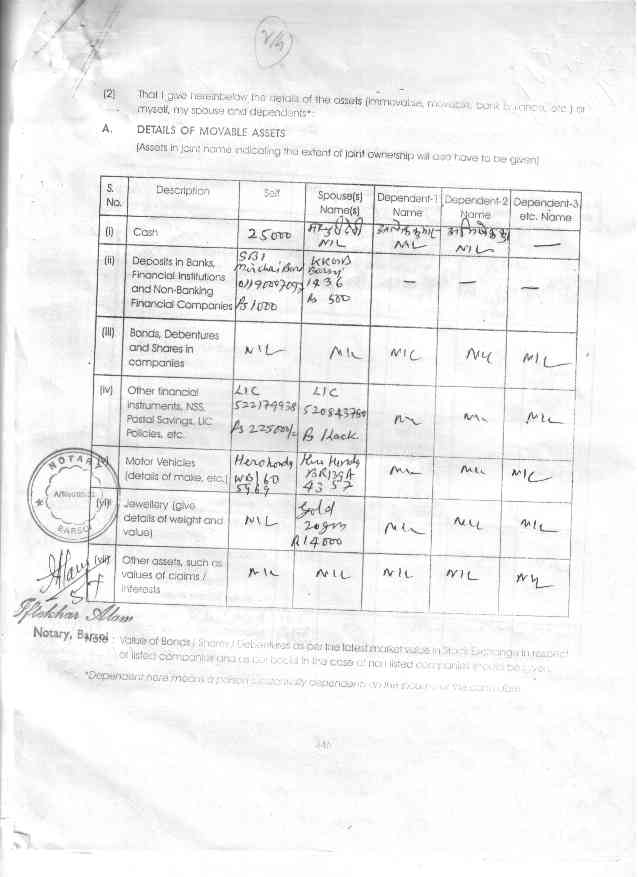 (2) That I give hereinbelow the details of the assets (immovable, movable, bank balance, etc.) of
myself, my spouse and dependents*:
A. DETAILS OF MOVABLE ASSETS
(Assets in joint name indicating the extent of joint ownership will also have to be given)
S. No. Description Self Spouse(s) Name(s) Dependent-1 Name Dependent-2 Name Dependent-3 etc. Name
(i) Cash 25000 NIL NIL NIL —
(ii) Deposits in Banks, SBI
Financial Institutions
and Non-Banking 1436 — — —
Financial Companies Rs 1000 Rs 500
(iii) Bonds, Debentures
and Shares in NIL NIL NIL NIL NIL
companies
(iv) Other financial LIC LIC
instruments, NSS, 522179938
Postal Savings, LIC NIL NIL NIL
Policies, etc. Rs 225000/-
(v) Motor Vehicles Hero Honda Hero Honda
(details of make, etc.) NIL NIL NIL
5969 4357
(vi) Jewellery (give Gold
details of weight and NIL 20gm NIL NIL NIL
value) R 14000
(vii) Other assets, such as
values of claims / NIL NIL NIL NIL NIL
interests
NOTARY
BARSOI
Iftekhar Alam
Notary, Barsoi
Note : Value of Bonds / Shares / Debentures as per the latest market value in Stock Exchange in respect
of listed companies and as per books in the case of non listed companies should be given.
*Dependent here means a person substantially dependent on the income of the candidate.